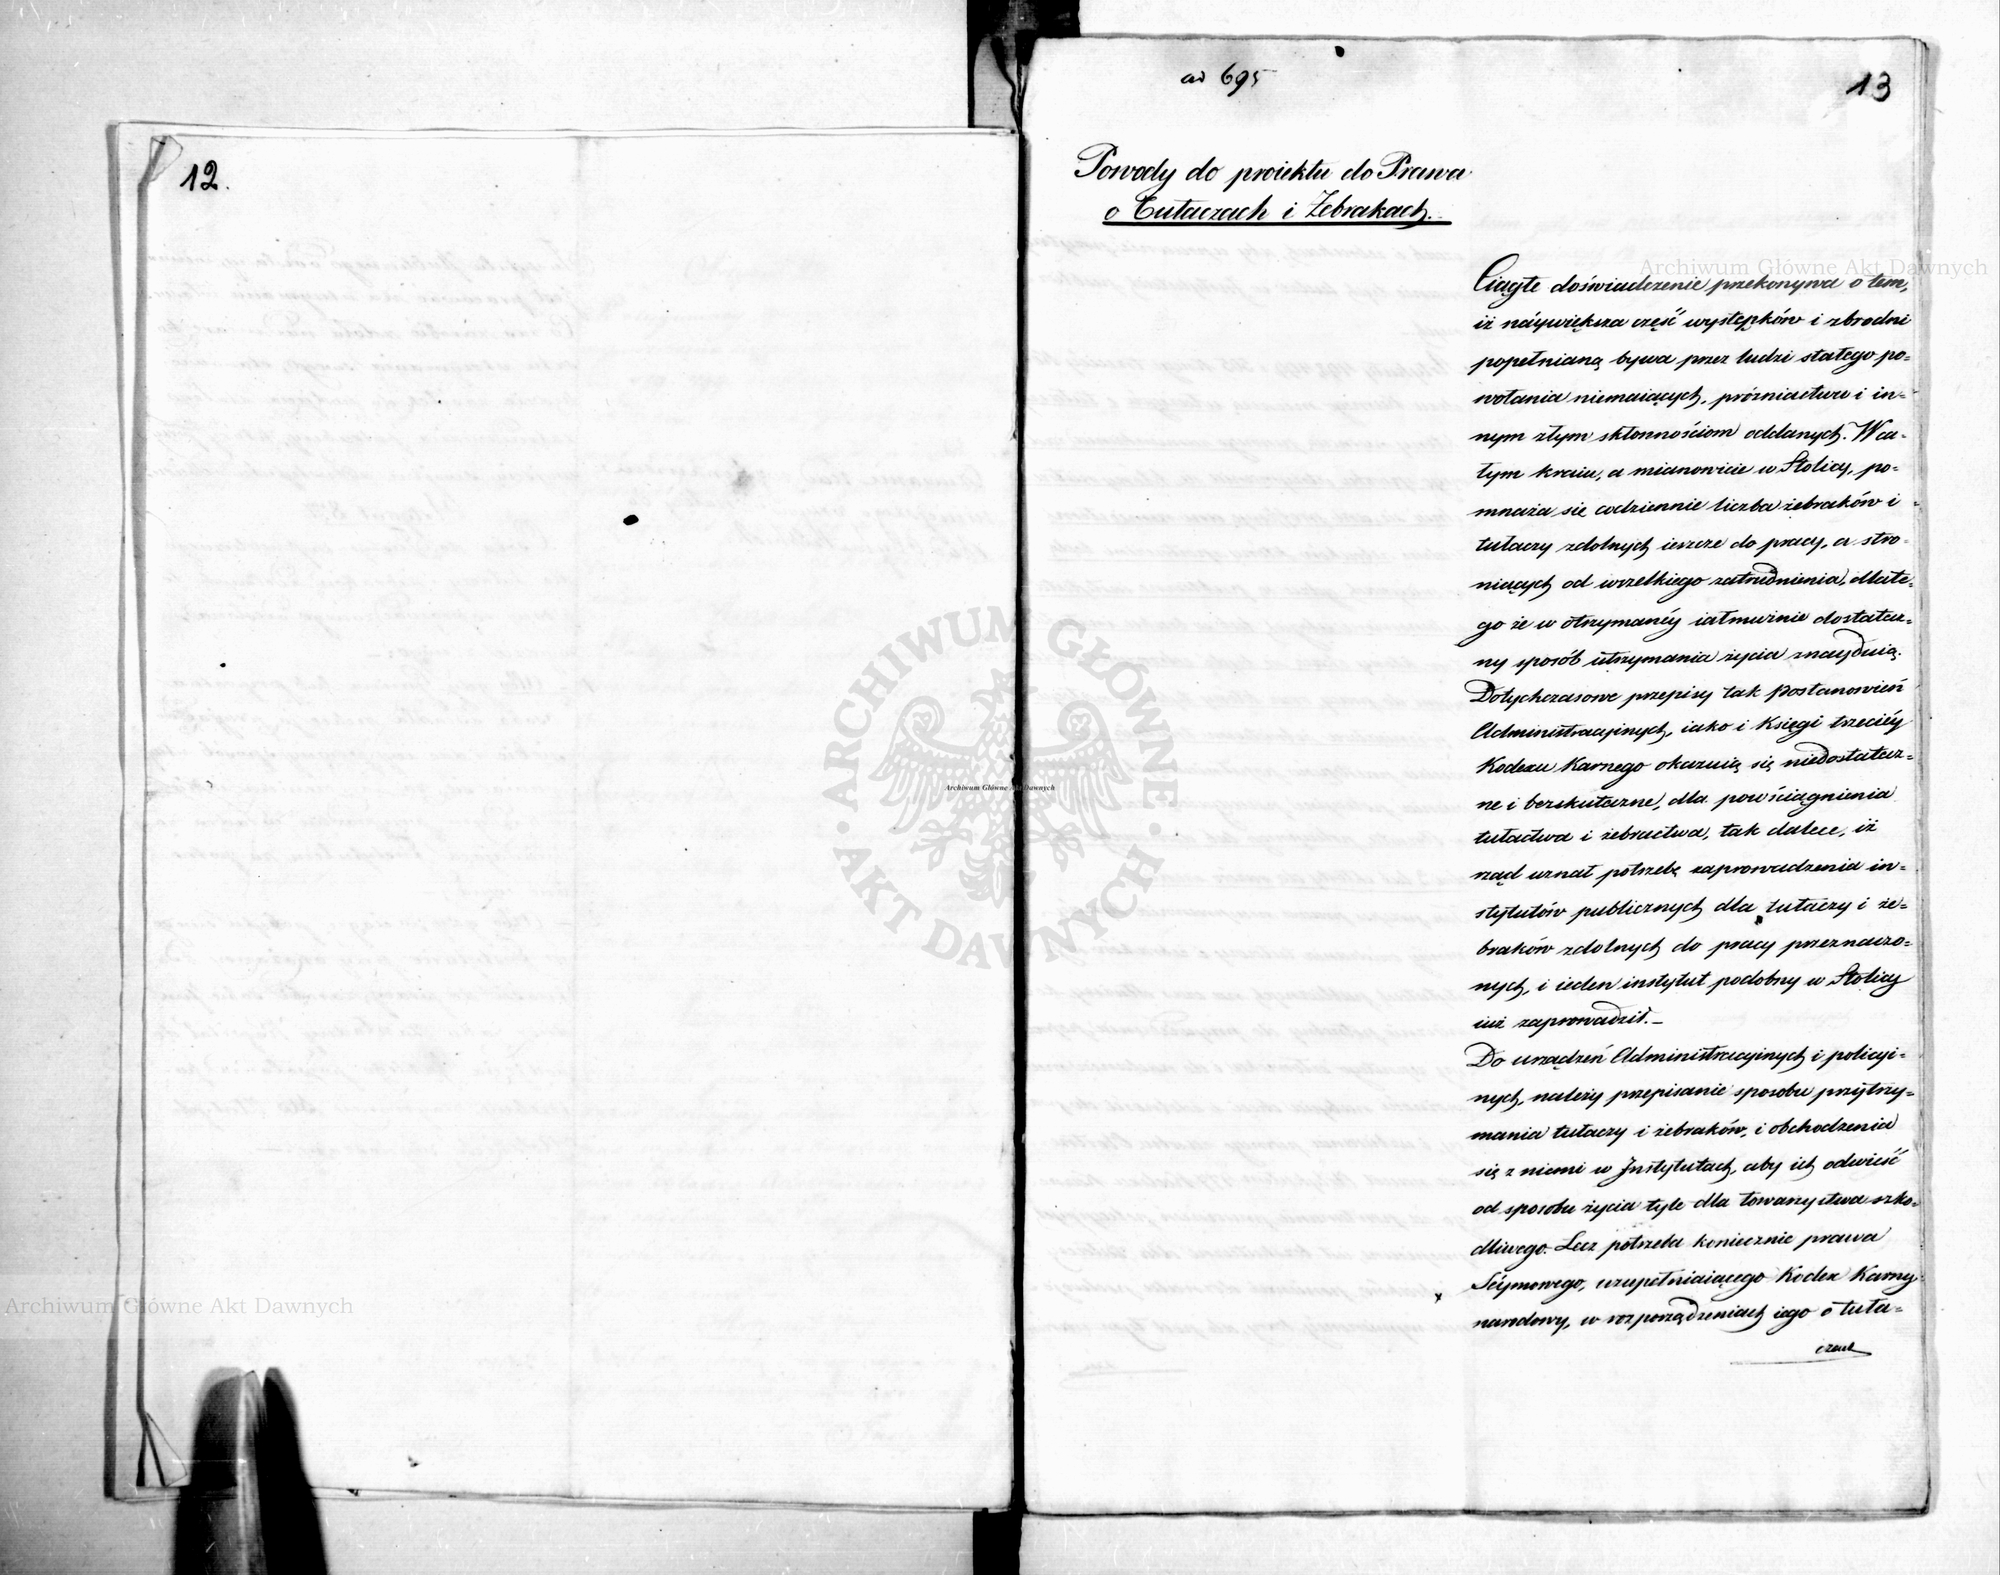 12.
ad 695
13
Powody do proiektu do Prawa
o Tułaczach i Żebrakach.
Ciągłe doświadczenie przekonywa o tem,
iż náywiększa część występków i zbrodni
popełnianą bywa przez ludzi stałego po=
wołania niemaiących, próżniactwu i in=
nym złym skłonnościom oddanych. W ca=
łym kraiu, a mianowicie w Stolicy, po=
mnaża się codziennie liczba żebraków i
tułaczy zdolnych ieszcze do pracy, a stro=
niących od wszelkiego zatrudnienia, dlate=
go że w otrzymanéy iałmużnie dostatecz=
ny sposób utrzymania życia znayduią.
Dotychczasowe przepisy tak Postanowień
Administracyinych, iako i Księgi trzeciéy
Kodexu Karnego okazuią się niedostatecz=
ne i bezskuteczne, dla powściągnienia
tułactwa i żebractwa, tak dalece, iż
rząd uznał potrzebę zaprowadzenia in=
stytutów publicznych dla tułaczy i że=
braków zdolnych do pracy przeznaczo=
nych, i ieden instytut podobny w Stolicy
iuż zaprowadził.—
Do urządzeń Administracyinych i policyi=
nych, należy przepisanie sposobu przytrzy=
mania tułaczy i żebraków, i obchodzenia
się z niemi w Instytutach, aby ich odwieść
od sposobu życia tyle dla towarzystwa szko=
dliwego. Lecz potrzeba koniecznie prawa
Séymowego, uzupełniaiącego Kodex Karny
narodowy, w rozporządzeniach iego o tuła=
czach
Archiwum Główne Akt Dawnych
ARCHIWUM GŁÓWNE
AKT DAWNYCH
Archiwum Główne Akt Dawnych
Archiwum Główne Akt Dawnych